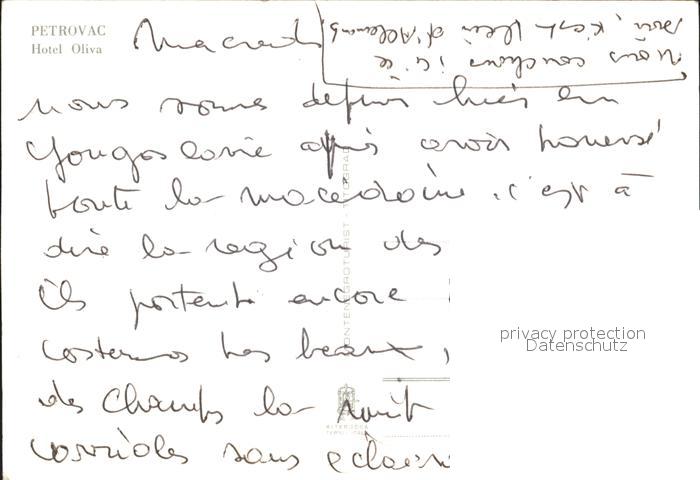 PETROVAC
Hotel Oliva
Mercredi
nous sommes depuis hier en
Yougoslavie après avoir traversé
toute la macedoine. c'est à
dire la region des
Ils portent encore
costumes très beaux,
des champs la nuit
carrioles sans eclair
Nous couchons ici ce
soir, c'est plein d'Allemands
MONTENEGROTURIST - TITOGRAD
privacy protection
Datenschutz